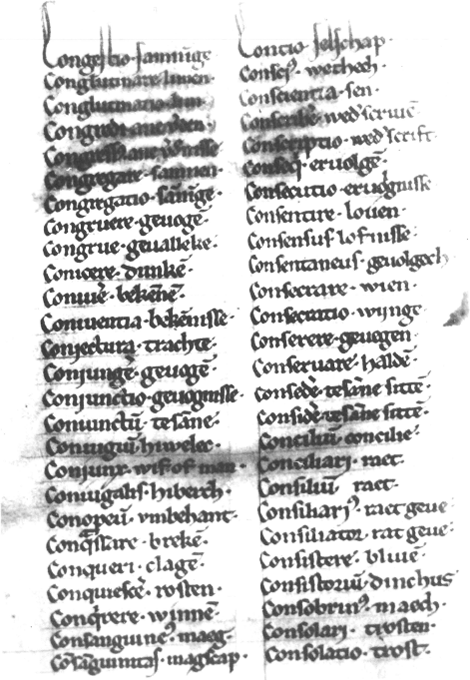 Congestio·samnīge
Conglutinare·limen·
Conglutinatio·
Congredi·
Congressio·
Congregare·samnen·
Congregatio·sāmīge·
Congruere·geuogē·
Congrue·geualleke·
Conicere·dunkē·
Coniuē·bekēnē·
Coniuentia·bekēnisse·
Coniectura·trachte·
Coniungē·geuogē·
Coniunctio·geuognisse·
Coniunctū·tesāne·
Coniugiū·hiwelec·
Coniunx·wif of man·
Coniugalis·hiberch·
Conopeū·vmbehanc·
Conq̄ssare·brekē·
Conqueri·clagē·
Conquiescē·rosten·
Conq̄rere·winnē·
Consanguineꝰ·maeg·
Cōsāguinitas·magscap·
Contio·selschap·
Conseiꝰ·wethech·
Conscientia·sen·
Conscribē·wed'scriuē
Conscriptio·wed'scrift·
Conseq̄·eruolgē·
Consecutio·eruolgnisse
Consentire·louen·
Consensus·lofnisse·
Consentaneus·geuolgech
Consecrare·wien·
Consecratio·wijnge·
Conserere·geuogen·
Conseruare·haldē·
Consedē·tesāne sittē·
Considē·tesāne sittē·
Conciliū·concilie·
Conciliari·raet·
Consiliū·raet·
Consiliariꝰ·raetgeue·
Consiliator·ratgeue·
Consistere·bliuē·
Consistoriū·dinchus·
Consobrinꝰ·maech·
Consolari·trosten·
Consolatio·trost·